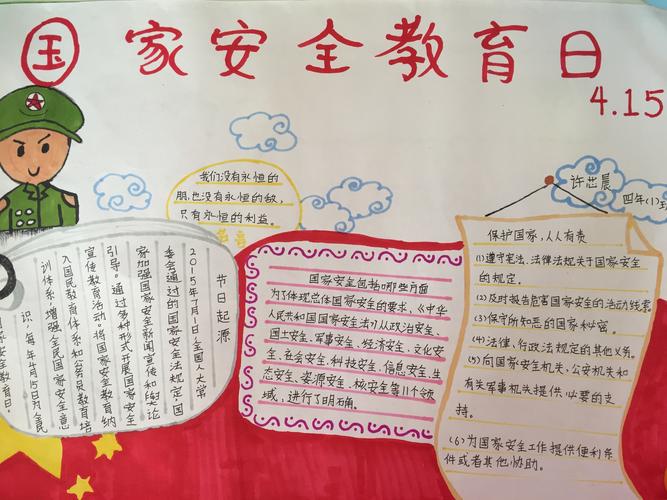 国家安全教育日
4.15
许芯晨
四年(1)
我们没有永恒的
朋,也没有永恒的敌,
只有永恒的利益。
节日起源
2015年7月1日,全国人大常
委会通过的国家安全法规定,国
家加强国家安全新闻宣传和舆论
引导。通过多种形式开展国家安全
宣传教育活动。将国家安全教育纳
入国民教育体系和公务员教育培
训体系,增强全民国家安全意
识。每年4月15日为全民
家安全教育日。
国家安全包括哪些方面
为了体现总体国家安全的要求,《中华
人民共和国国家安全法》从政治安全、
国土安全、军事安全、经济安全、文化安
全、社会安全、科技安全、信息安全、生
态安全、资源安全、核安全等11个领
域,进行了明确。
保护国家,人人有责
(1)遵守宪法、法律法规关于国家安全
的规定。
(2)及时报告危害国家安全的活动线索。
(3)保守所知悉的国家秘密。
(4)法律、行政法规定的其他义务。
(5)向国家安全机关、公安机关和
有关军事机关提供必要的支
持。
(6)为国家安全工作提供便利条
件或者其他协助。